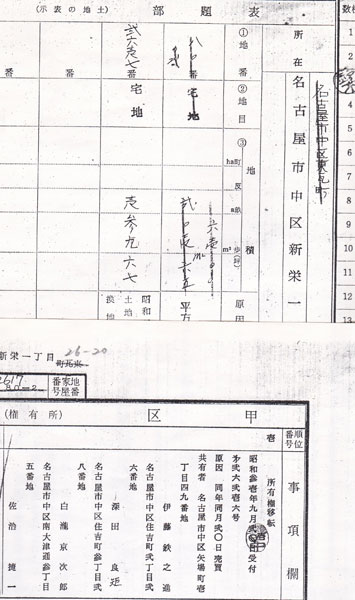 表題部
(土地の表示)
数枚
1
2
3
4
5
6
7
8
9
10
11
12
13
所在
名古屋市中区東瓦町
名古屋市中区新栄一
①地番
②地目
③地積
ha町
反
a畝
m²歩(坪)
原因
番
宅地
平方
弐六壱七
番
宅地
壱参九六七
昭和
土地
番
番
新栄一丁目
東瓦町
26-20
2617
家屋番号
地番
甲区
(所有権)
順位番号
事項欄
壱
所有権移転
昭和参壱年九月弐〇日受付
第弐六弐壱六号
原因 同年同月弐〇日売買
共有者 名古屋市中区矢場町壱
丁目四九番地
伊藤鉄之進
名古屋市中区住吉町弐丁目弐
六番地
深田良矩
名古屋市中区住吉町参丁目弐
八番地
白瀧京次郎
名古屋市中区南大津通参丁目
五番地
佐治捷一